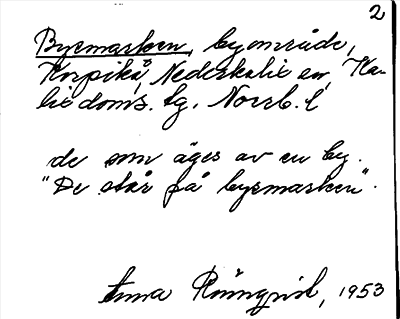 2
Byemarken, byområde,
Korpikå, Nederkalix en, Ka-
lix doms. tg. Norrb. l
de som äges av en by.
"De står på byemarken".
Anna Rönnqvist, 1953